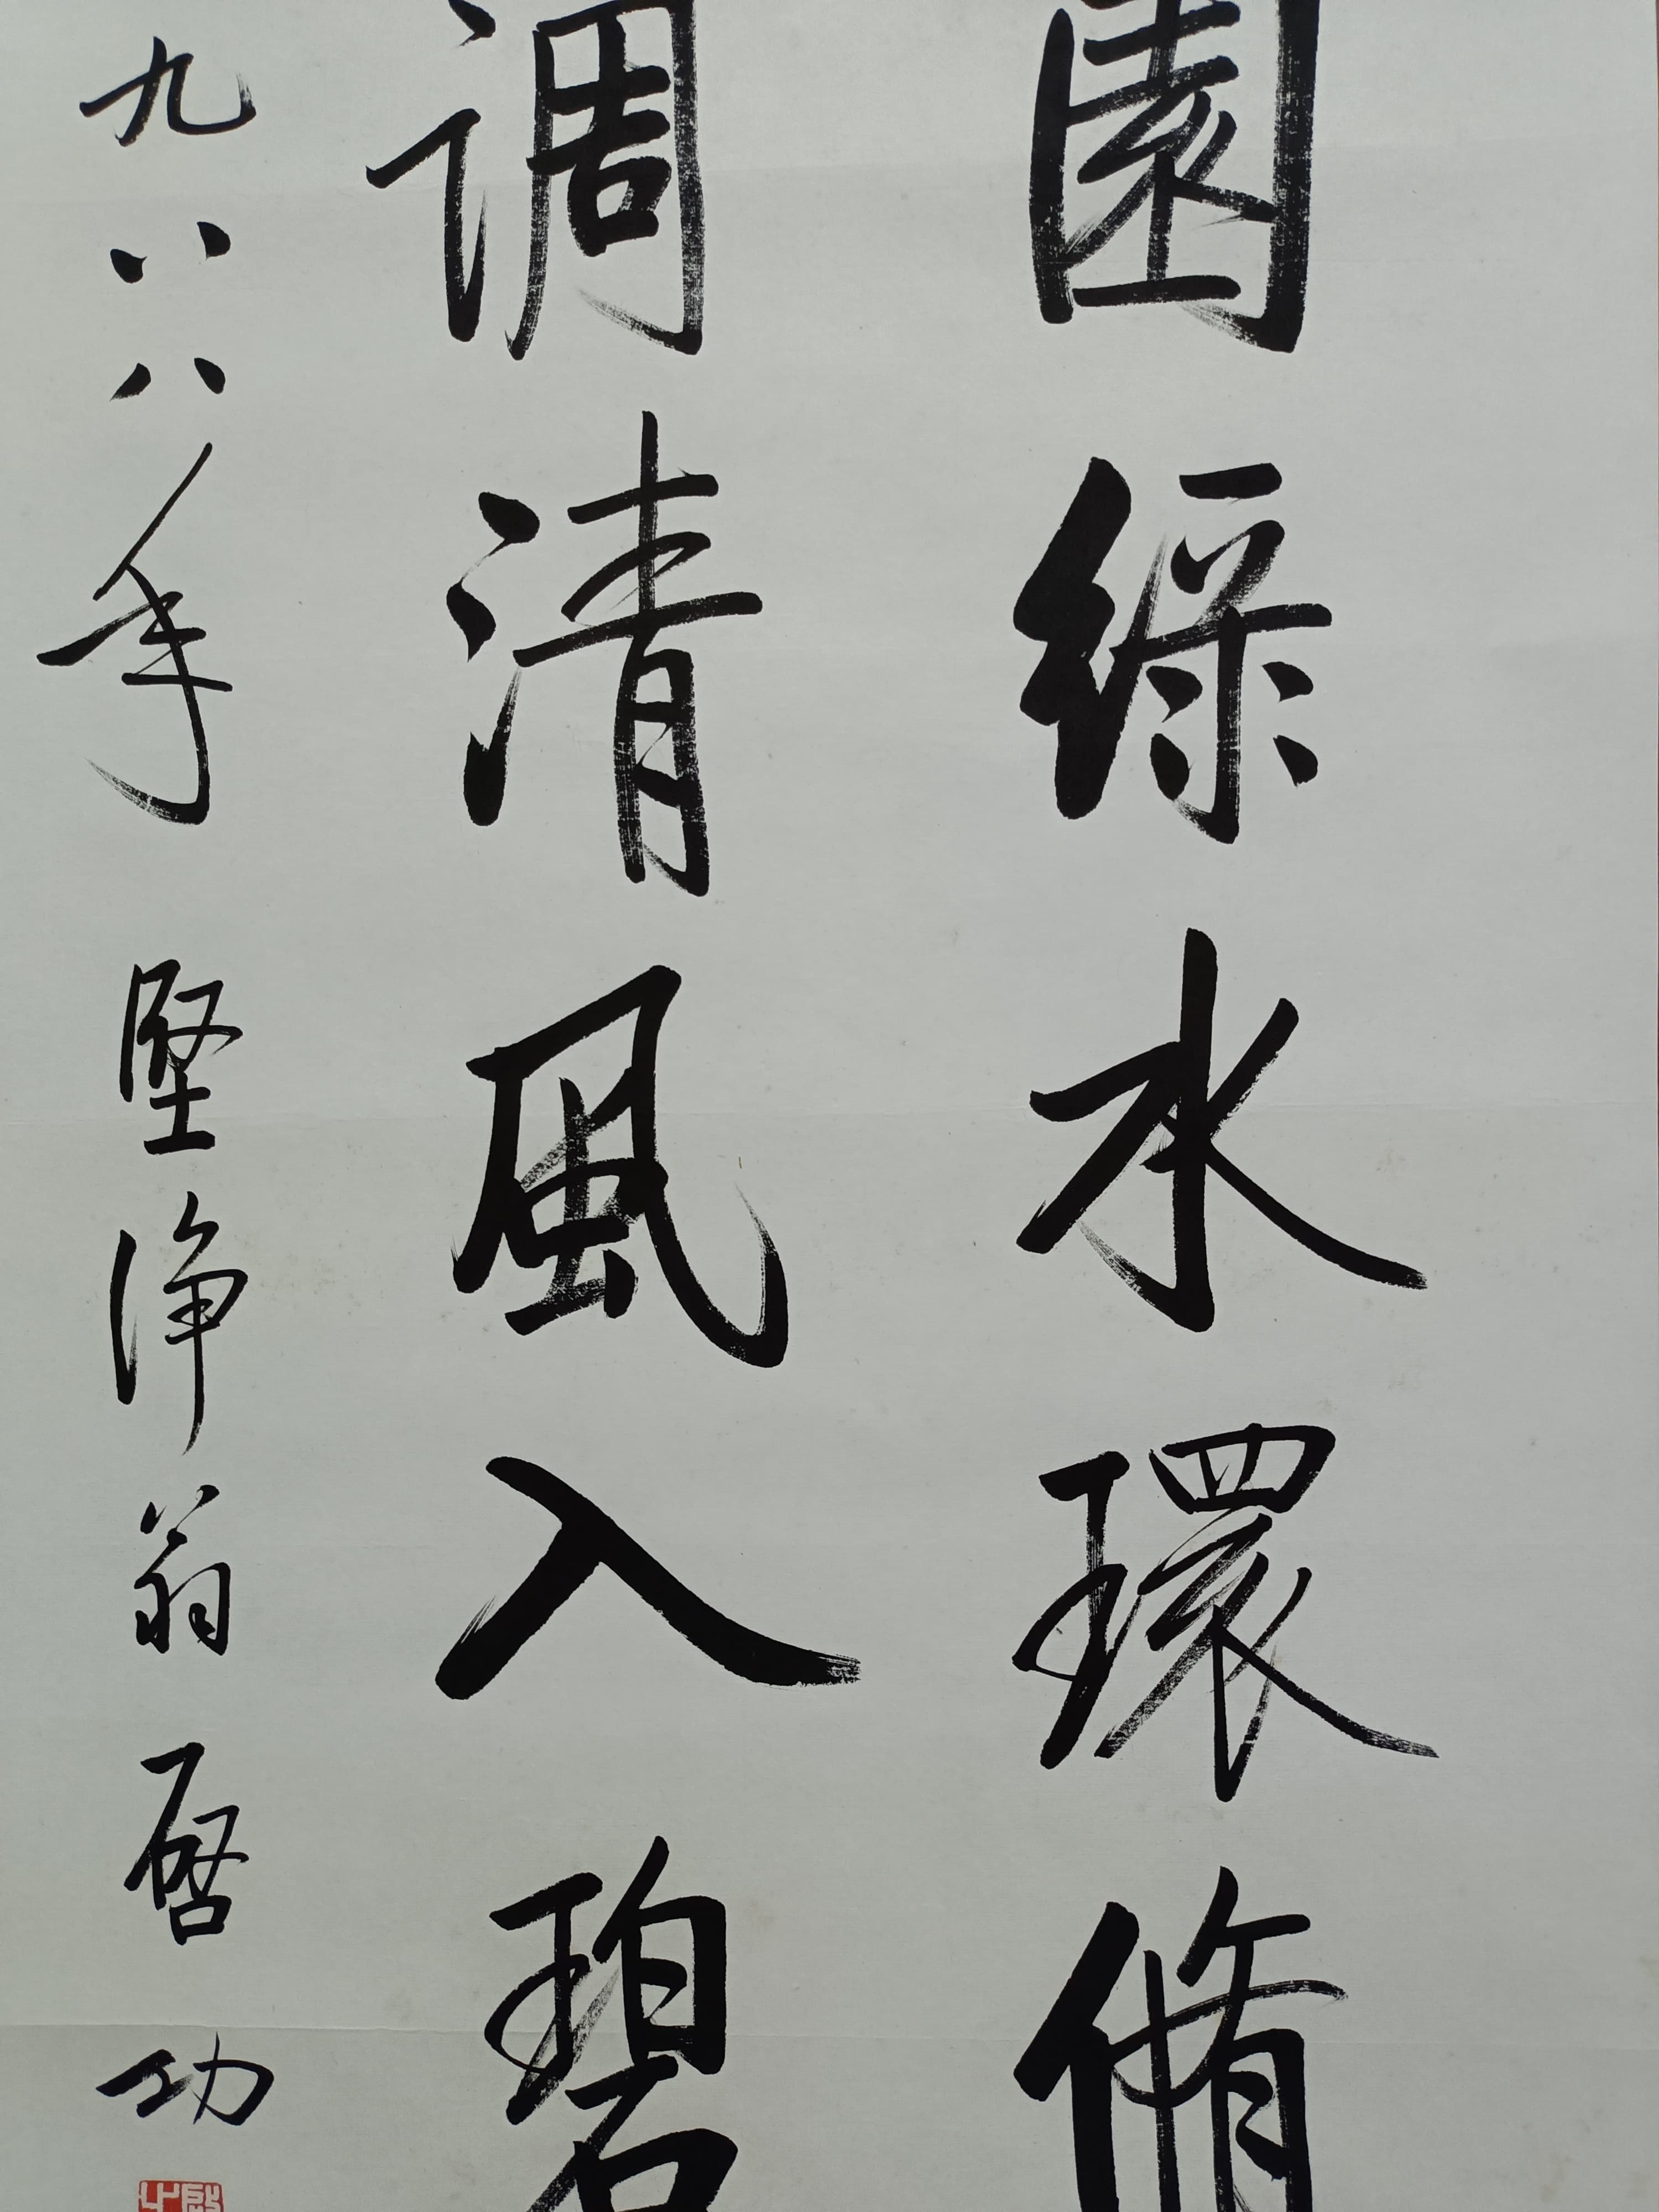 園綠水環脩
调清風入碧
九八八年 堅净翁 啓功